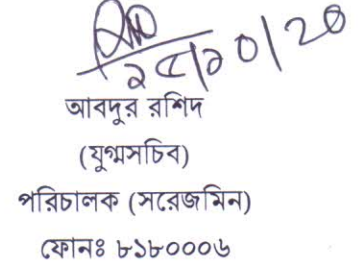 আবদুর রশিদ
(যুগ্মসচিব)
পরিচালক (সরেজমিন)
ফোনঃ ৮১৮০০০৬